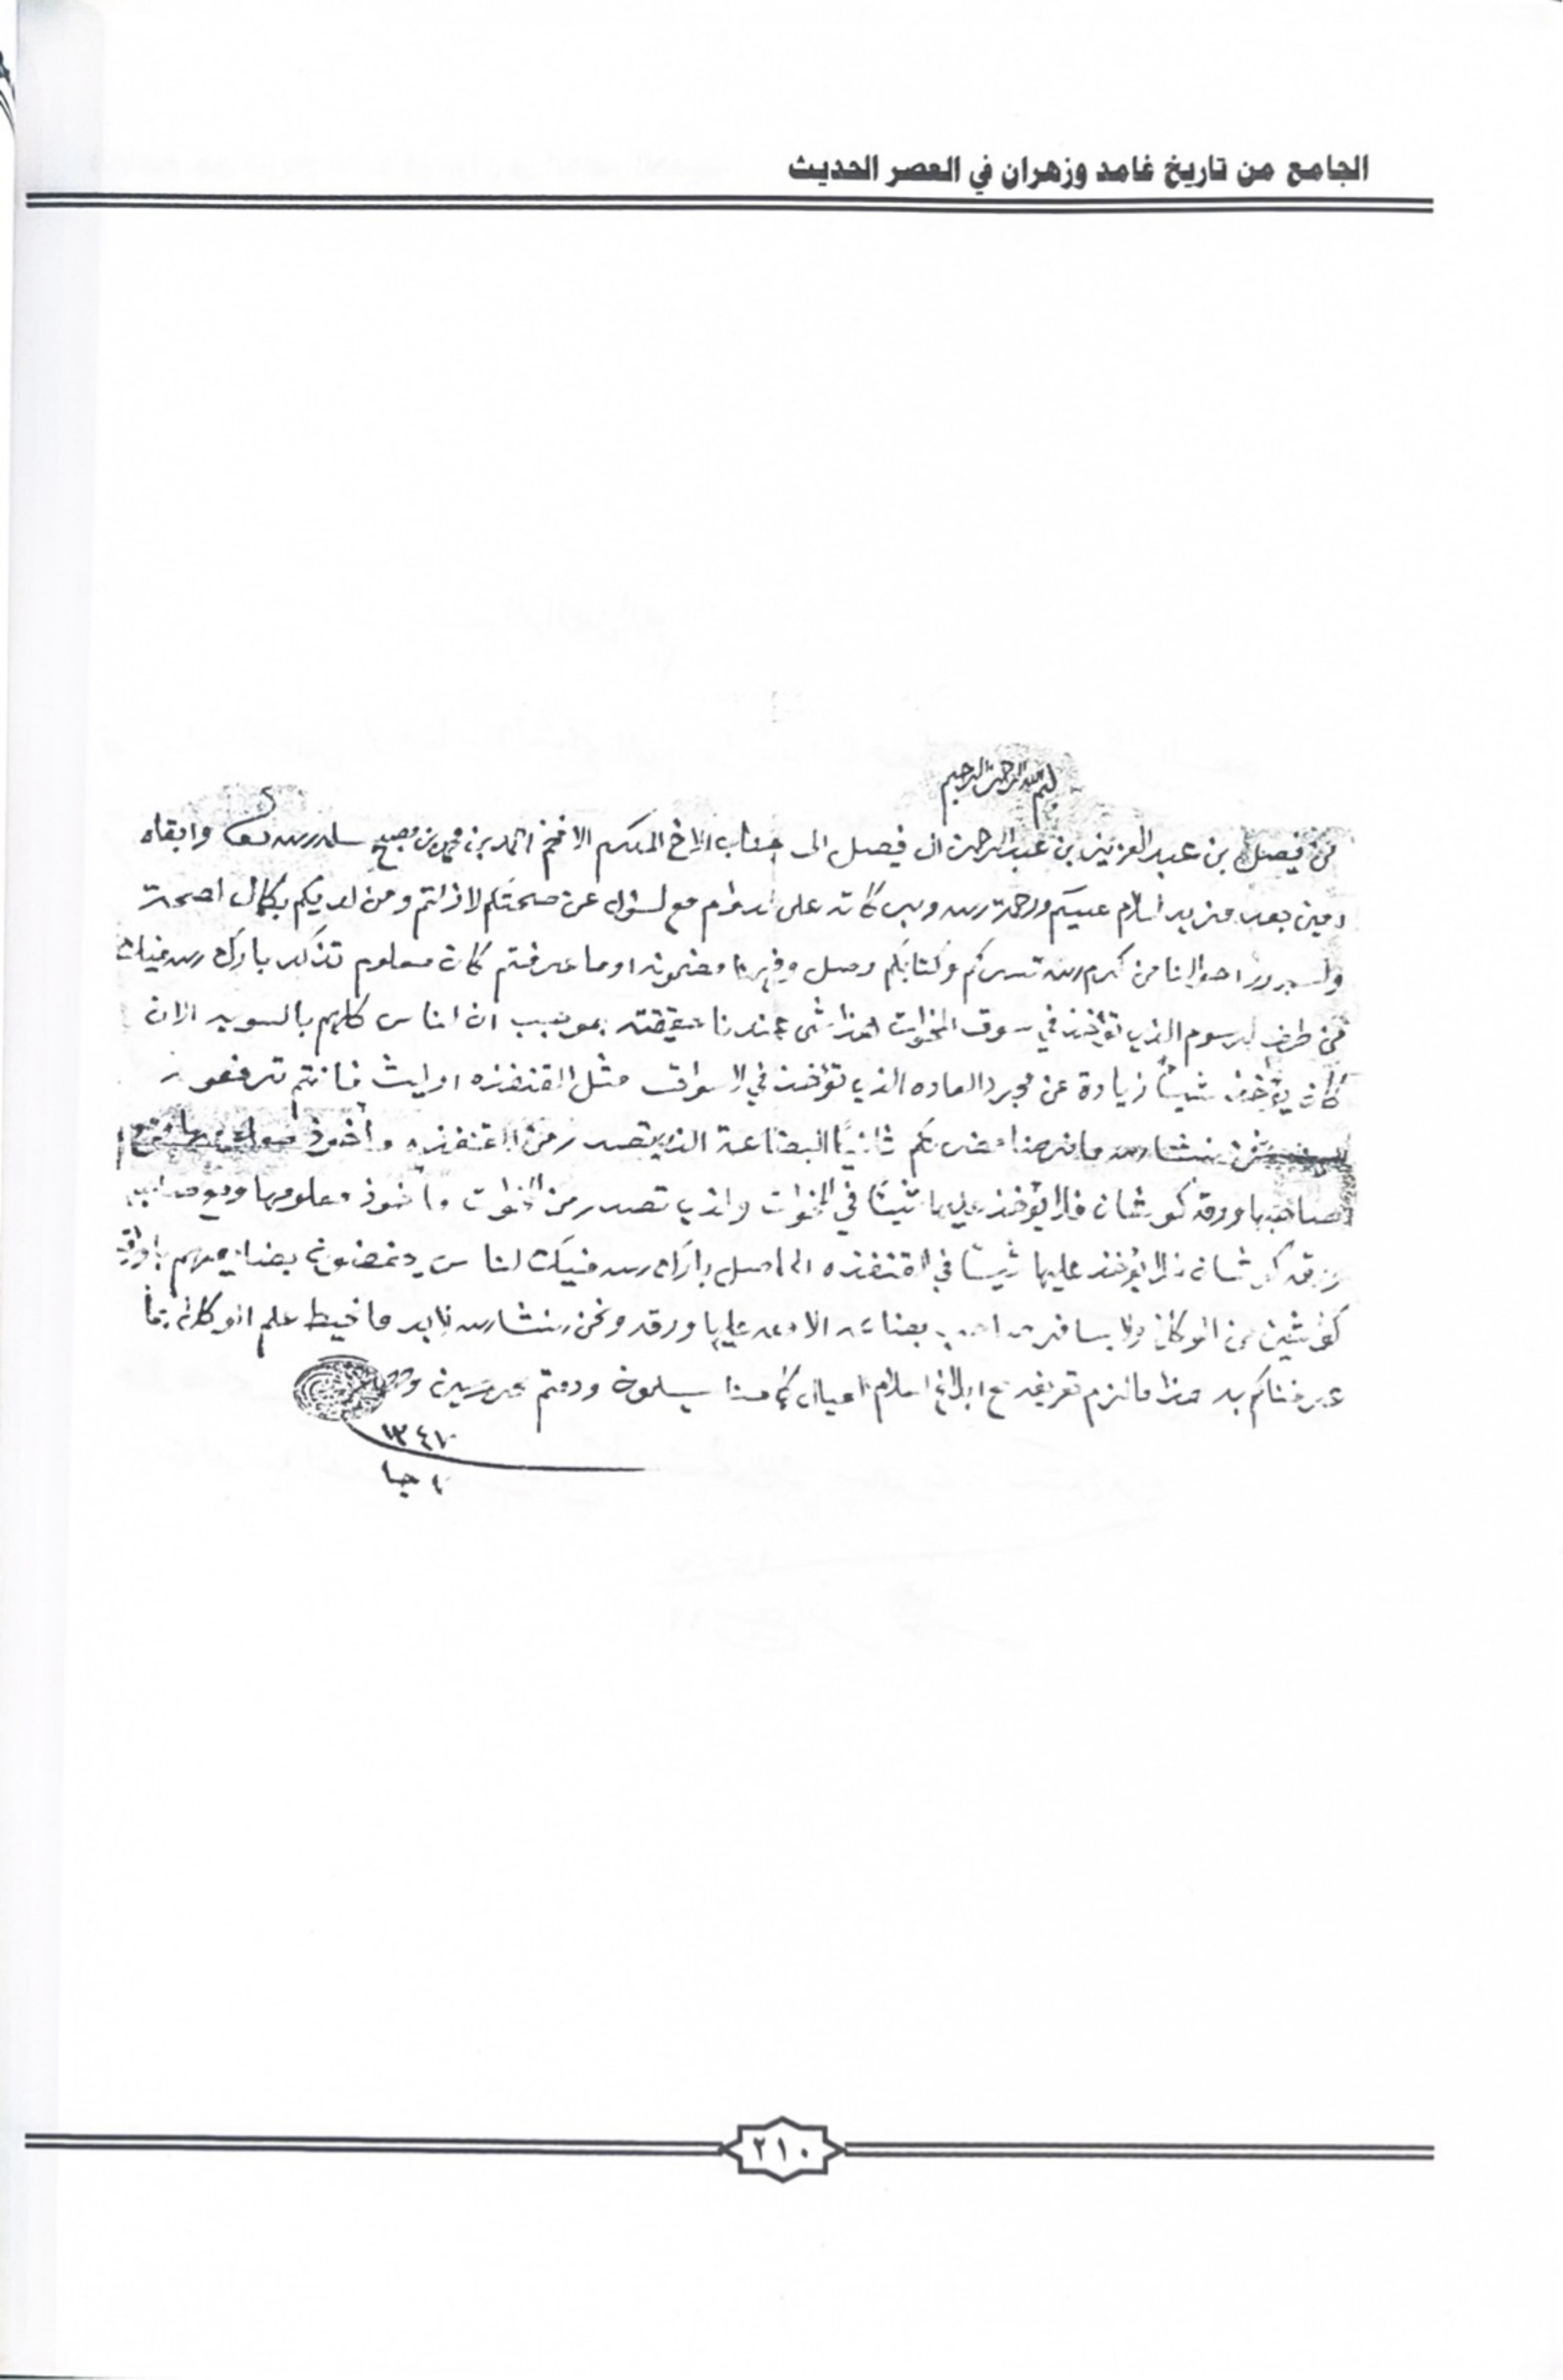 الجامع من تاريخ غامد وزهران في العصر الحديث
بسم الله الرحمن الرحيم
من فيصل بن عبد العزيز بن عبد الرحمن ال فيصل الى جناب الاخ المكرم الافخم احمد بن محمد بن مصبح سلمه الله تعالى وابقاه
امين بعد مزيد السلام عليكم ورحمة الله وبركاته على الدوام مع لسؤال عن صحتكم لا زلتم ومن لديكم بكمال الصحة
والسرور احوالنا من كرم الله تسركم وكتابكم وصل وفهمنا مضمونه وما عرفتم كان معلوم تذكر بارك الله فيك
من طرف لرسوم الذي تؤخذ في سوق المخواة هذا شي عندنا حقيقته بموجب ان الناس كلهم بالسويه الان
كان يؤخذ شيئاً زيادة عن مجرد العاده الذي تؤخذ في الاسواق مثل القنفذه او ليث فانتم ترفعو
ونحن انشا الله ما نرضا مضرتكم ثانياً البضاعة الذي تصدر من القنفذه ماخوذ معلومها ومع
صاحبها ورقه كوشان فلا يؤخذ عليها شيئاً في المخواة والذي تصدر من المخواة ماخوذ معلومها ومع صاحبها
ورقه كوشان فلا يؤخذ عليها شيئاً في القنفذه الحاصل بارك الله فيك الناس يحفضون بضايعهم باوراق
كواشين من الوكلا ولا يسافر صاحب بضاعه الا ومعه عليها ورقه ونحن انشا الله لابد ما نحيط علم الوكلا بما
عرفناكم به هذا ما لزم تعريفه مع ابلاغ السلام العيال كما منا يسلمون ودمتم محروسين
١٣٤٧
١٠ جا
٢١٠